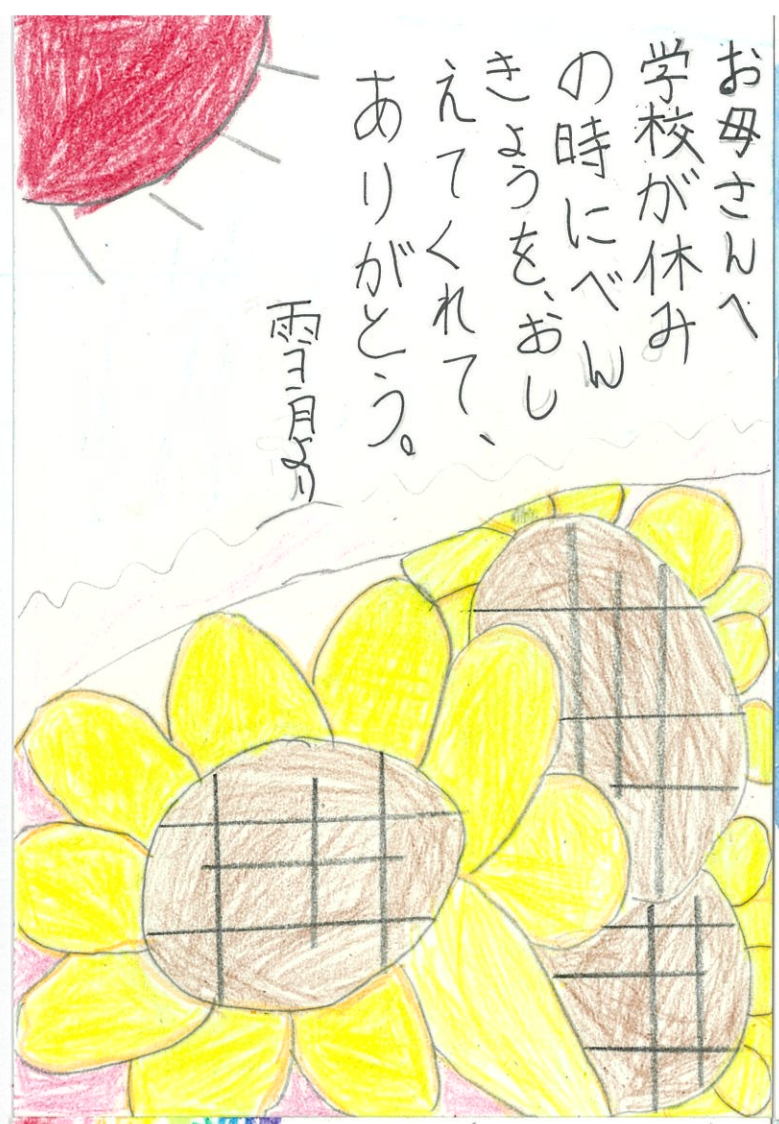 お母さんへ
学校が休み
の時にべん
きょうを、おし
えてくれて、
ありがとう。
雪月より